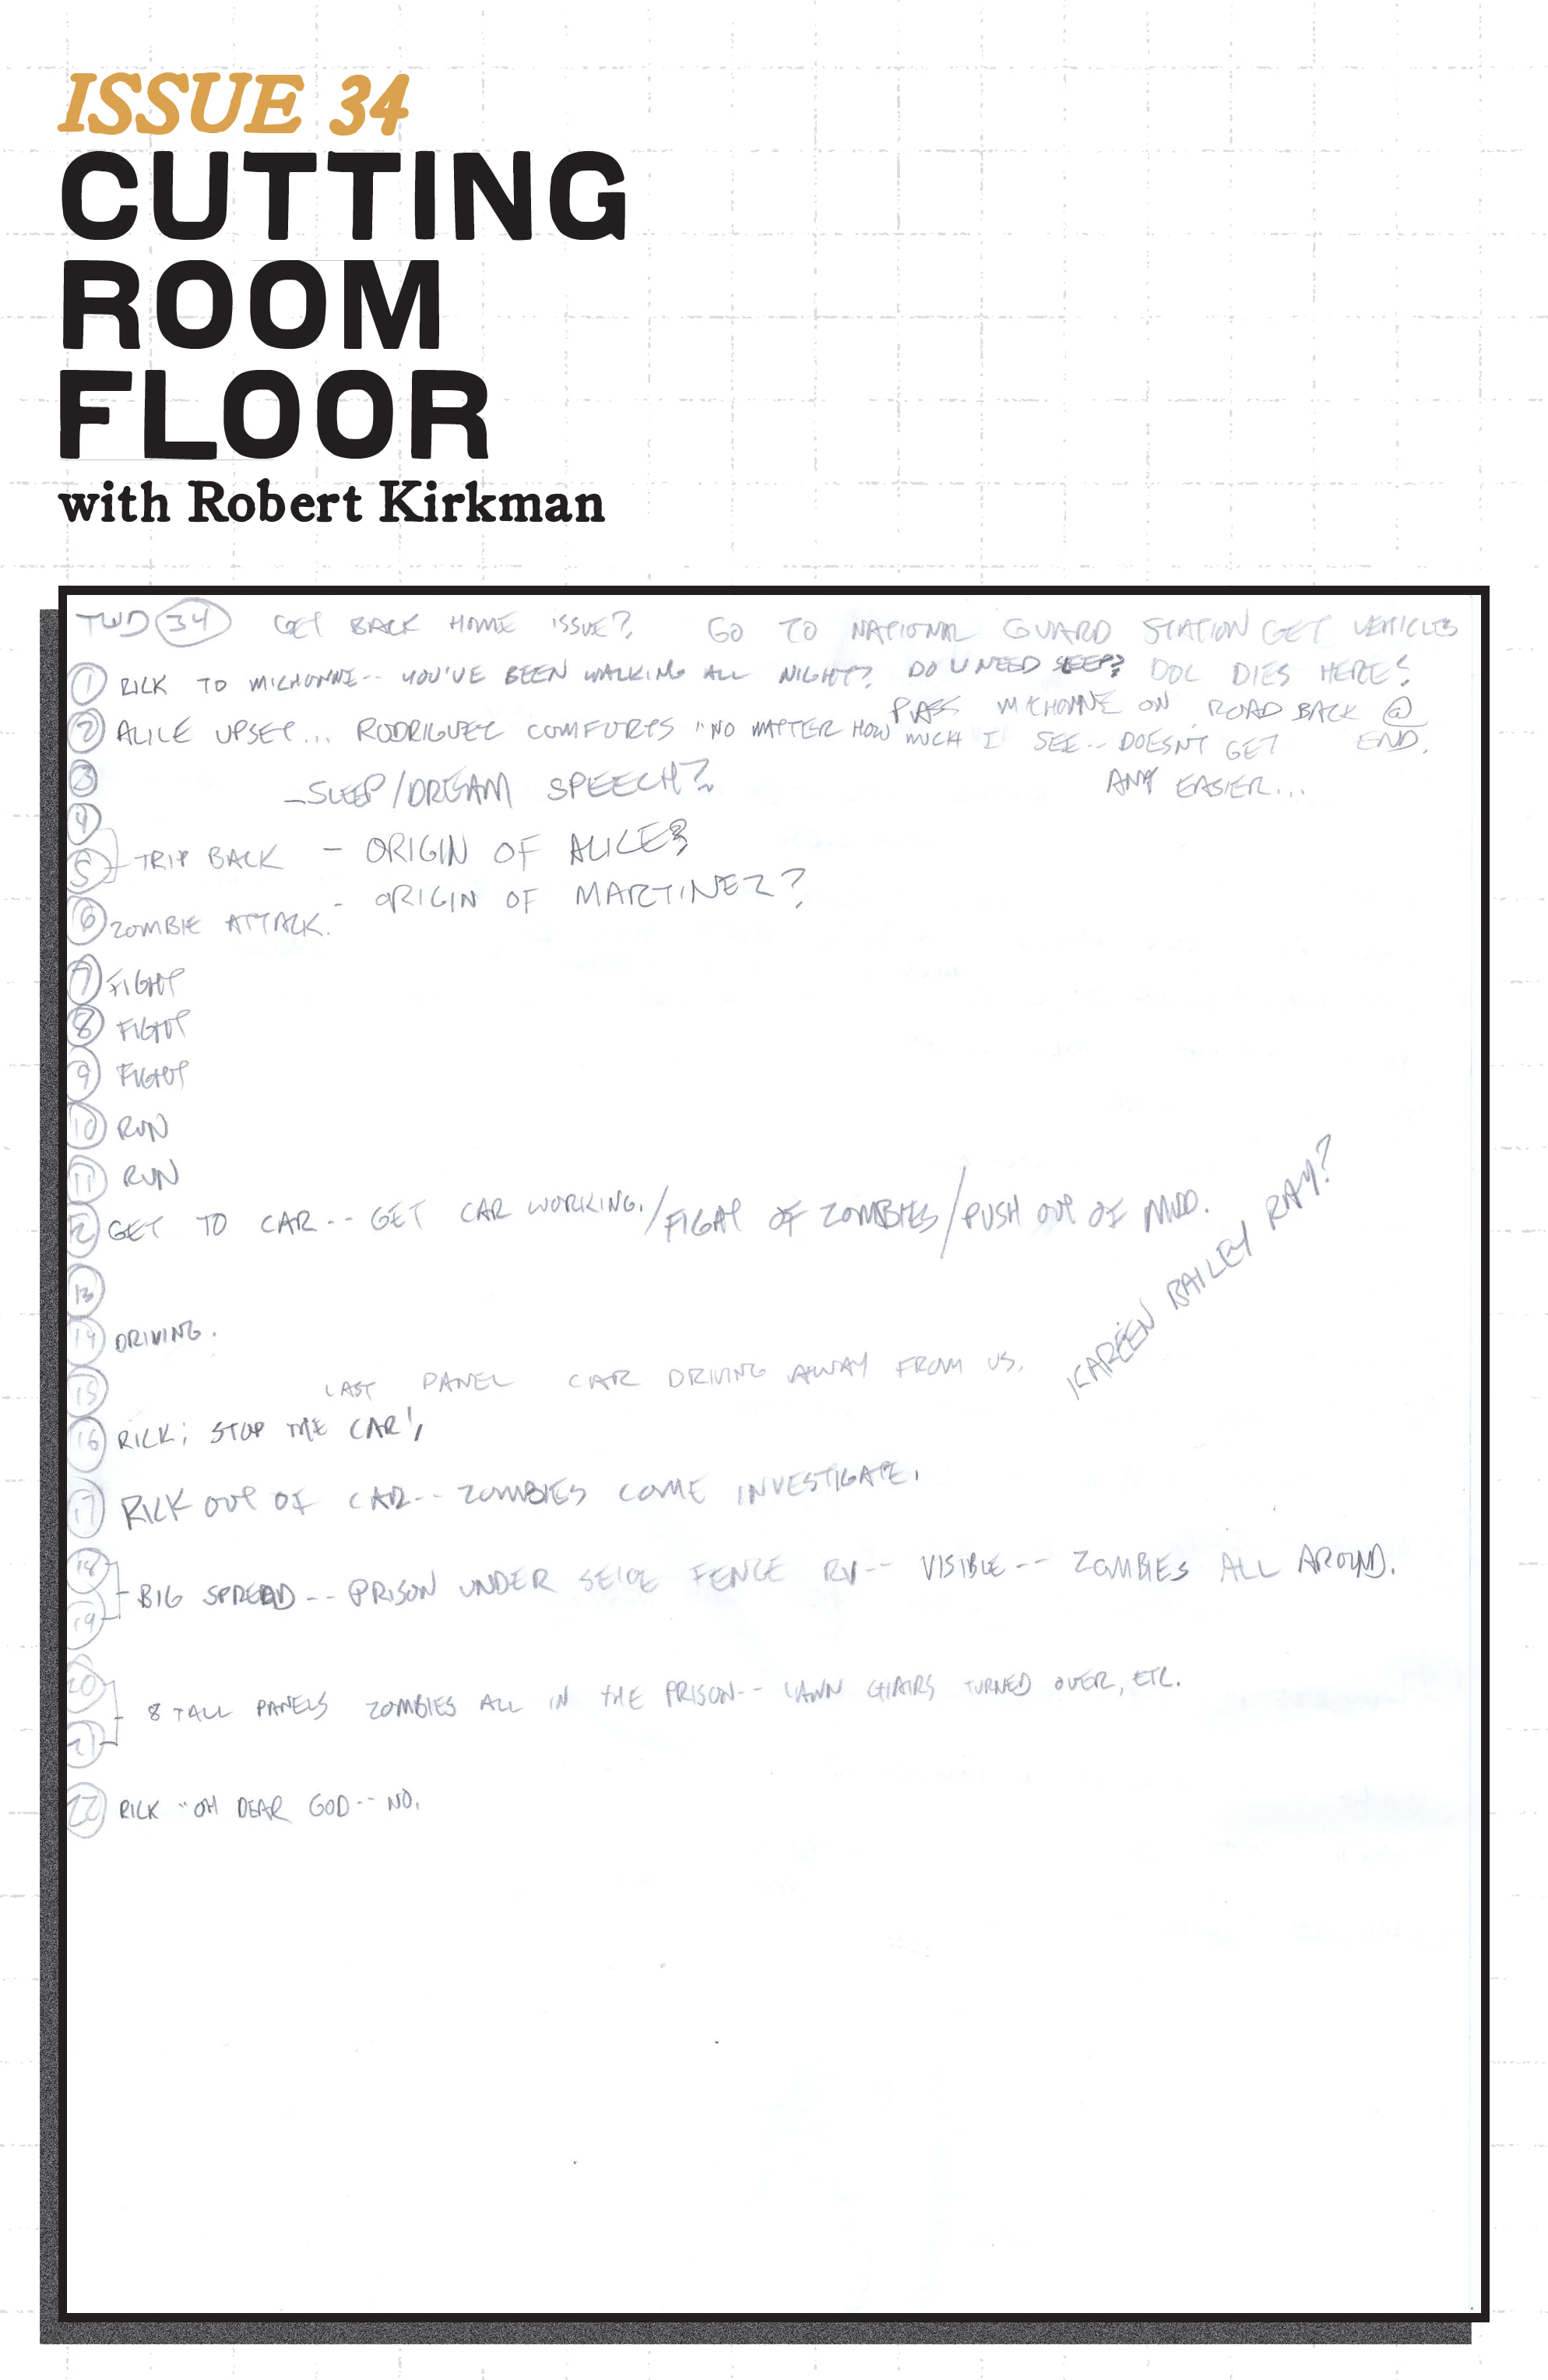 ISSUE 34
CUTTING
ROOM
FLOOR
with Robert Kirkman
TWD 34 GET BACK HOME ISSUE? GO TO NATIONAL GUARD STATION GET VEHICLES
1 RICK TO MICHONNE-- YOU'VE BEEN WALKING ALL NIGHT? DO U NEED SLEEP? DOC DIES HERE?
PASS MICHONNE ON ROAD BACK @ END.
2 ALICE UPSET... RODRIGUEZ COMFORTS "NO MATTER HOW MUCH I SEE-- DOESN'T GET
ANY EASIER...
3
-SLEEP/DREAM SPEECH?
4
5 TRIP BACK - ORIGIN OF ALICE?
- ORIGIN OF MARTINEZ?
6 ZOMBIE ATTACK.
7 FIGHT
8 FIGHT
9 FIGHT
10 RUN
11 RUN
12 GET TO CAR-- GET CAR WORKING./FIGHT OF ZOMBIES/PUSH OUT OF MUD.
KAREEN BAILEY RAY?
13
14 DRIVING.
15 LAST PANEL CAR DRIVING AWAY FROM US.
16 RICK; STOP THE CAR!,
17 RICK OUT OF CAR-- ZOMBIES COME INVESTIGATE.
18
19 BIG SPREAD-- PRISON UNDER SEIGE FENCE RV-- VISIBLE-- ZOMBIES ALL AROUND.
20
21 8 TALL PANELS ZOMBIES ALL IN THE PRISON-- LAWN CHAIRS TURNED OVER, ETC.
22 RICK "OH DEAR GOD-- NO.